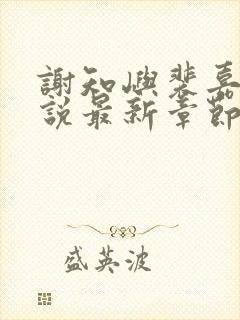 謝知嶼裴嘉
說最新章節
盛英波